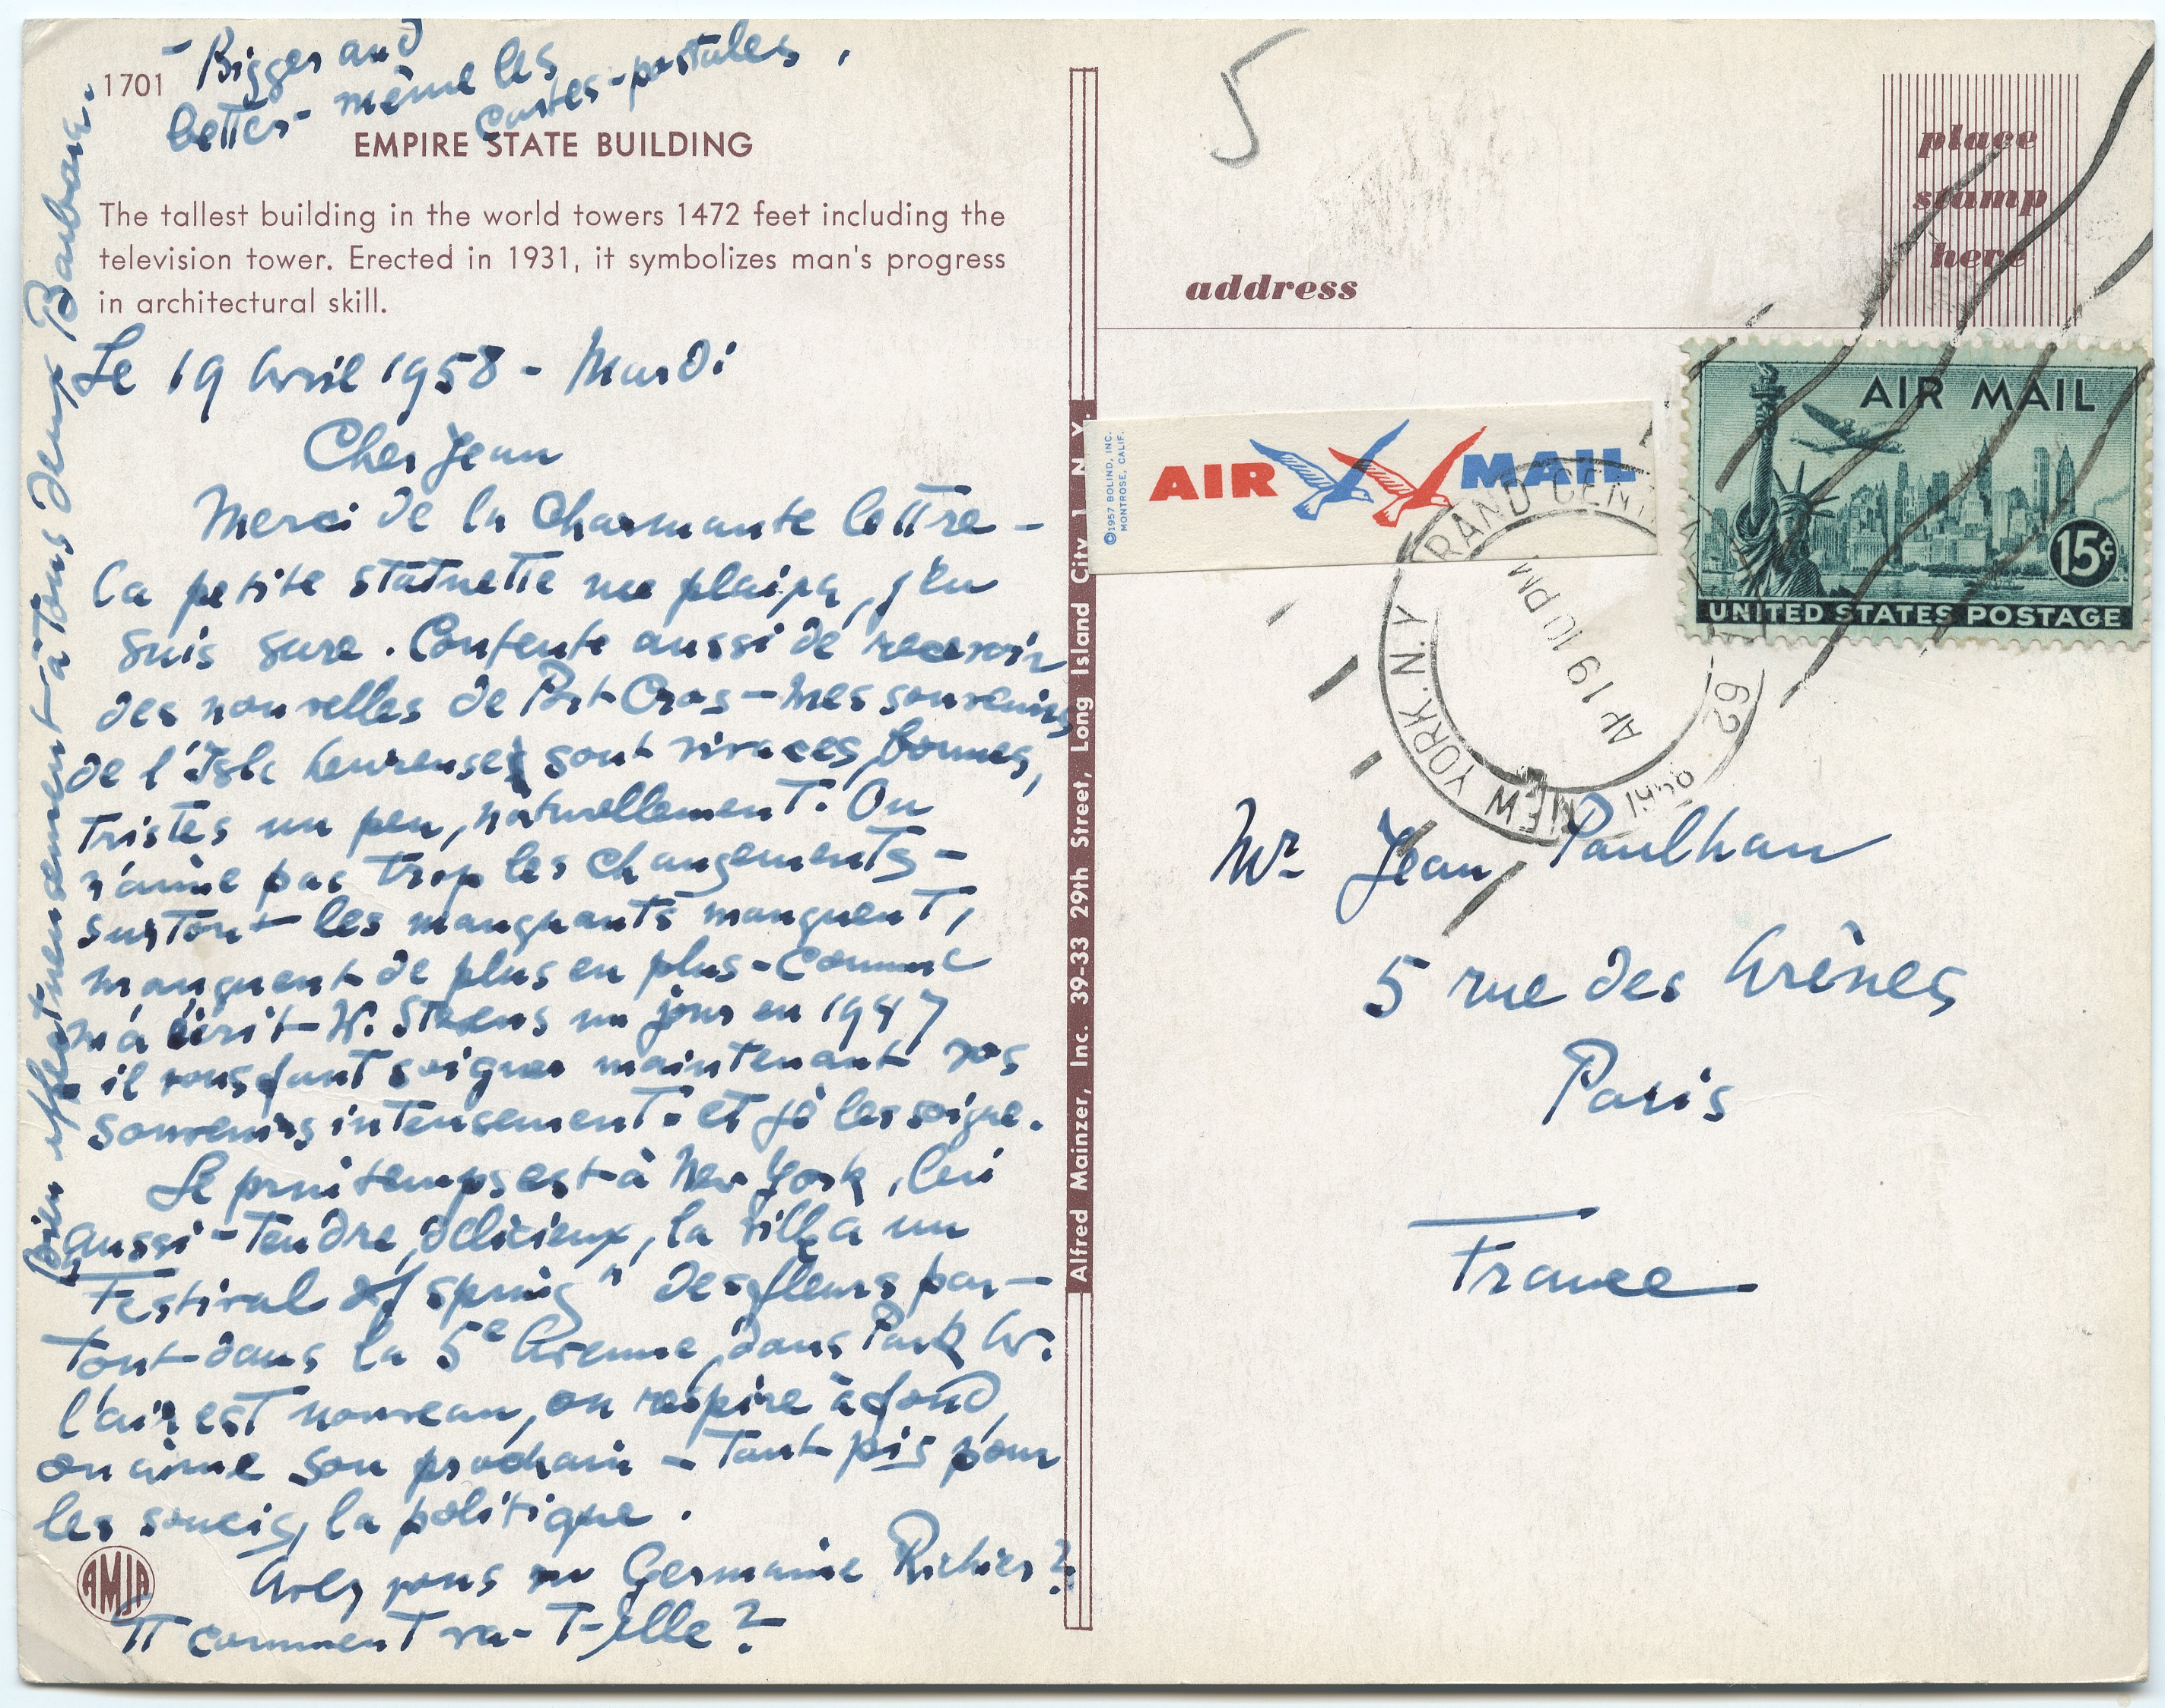 1701
- Bigger and
better - même les
cartes-postales,
EMPIRE STATE BUILDING
The tallest building in the world towers 1472 feet including the
television tower. Erected in 1931, it symbolizes man's progress
in architectural skill.
Le 19 Avril 1958 - Mardi
Cher Jean
Merci de la charmante lettre -
La petite statuette me plaira, j'en
suis sure. Contente aussi de recevoir
des nouvelles de Port Cros - mes souvenirs
de l'Isle heureuse sont vivaces, bonnes,
tristes un peu, naturellement. On
n'aime pas trop les changements -
surtout les manquants manquent,
manquent de plus en plus - Comme
m'a écrit W. Stevens un jour en 1947
- il vous faut soigner maintenant vos
souvenirs intensement. et je les soigne.
Le printemps est à New York, lui
aussi - Tendre, délicieux, la ville a un
"Festival of spring" des fleurs par-
tout dans la 5e Avenue, dans Park Av.
l'air est nouveau, on respire à fond,
on aime son prochain - Tant pis pour
les soucis, la politique.
Avez vous vu Germaine Richier?
Et comment va-t-elle?
Bien affectueusement à tous deux Barbara.
AMJA
Alfred Mainzer, Inc. 39-33 29th Street, Long Island City 1, N. Y.
5
place
stamp
here
address
©1957 BOLIND, INC.
MONTROSE, CALIF.
AIR MAIL
AIR MAIL
15¢
UNITED STATES POSTAGE
NEW YORK. N.Y.
AP 19 10 PM
Mr Jean Paulhan
5 rue des Arènes
Paris
France